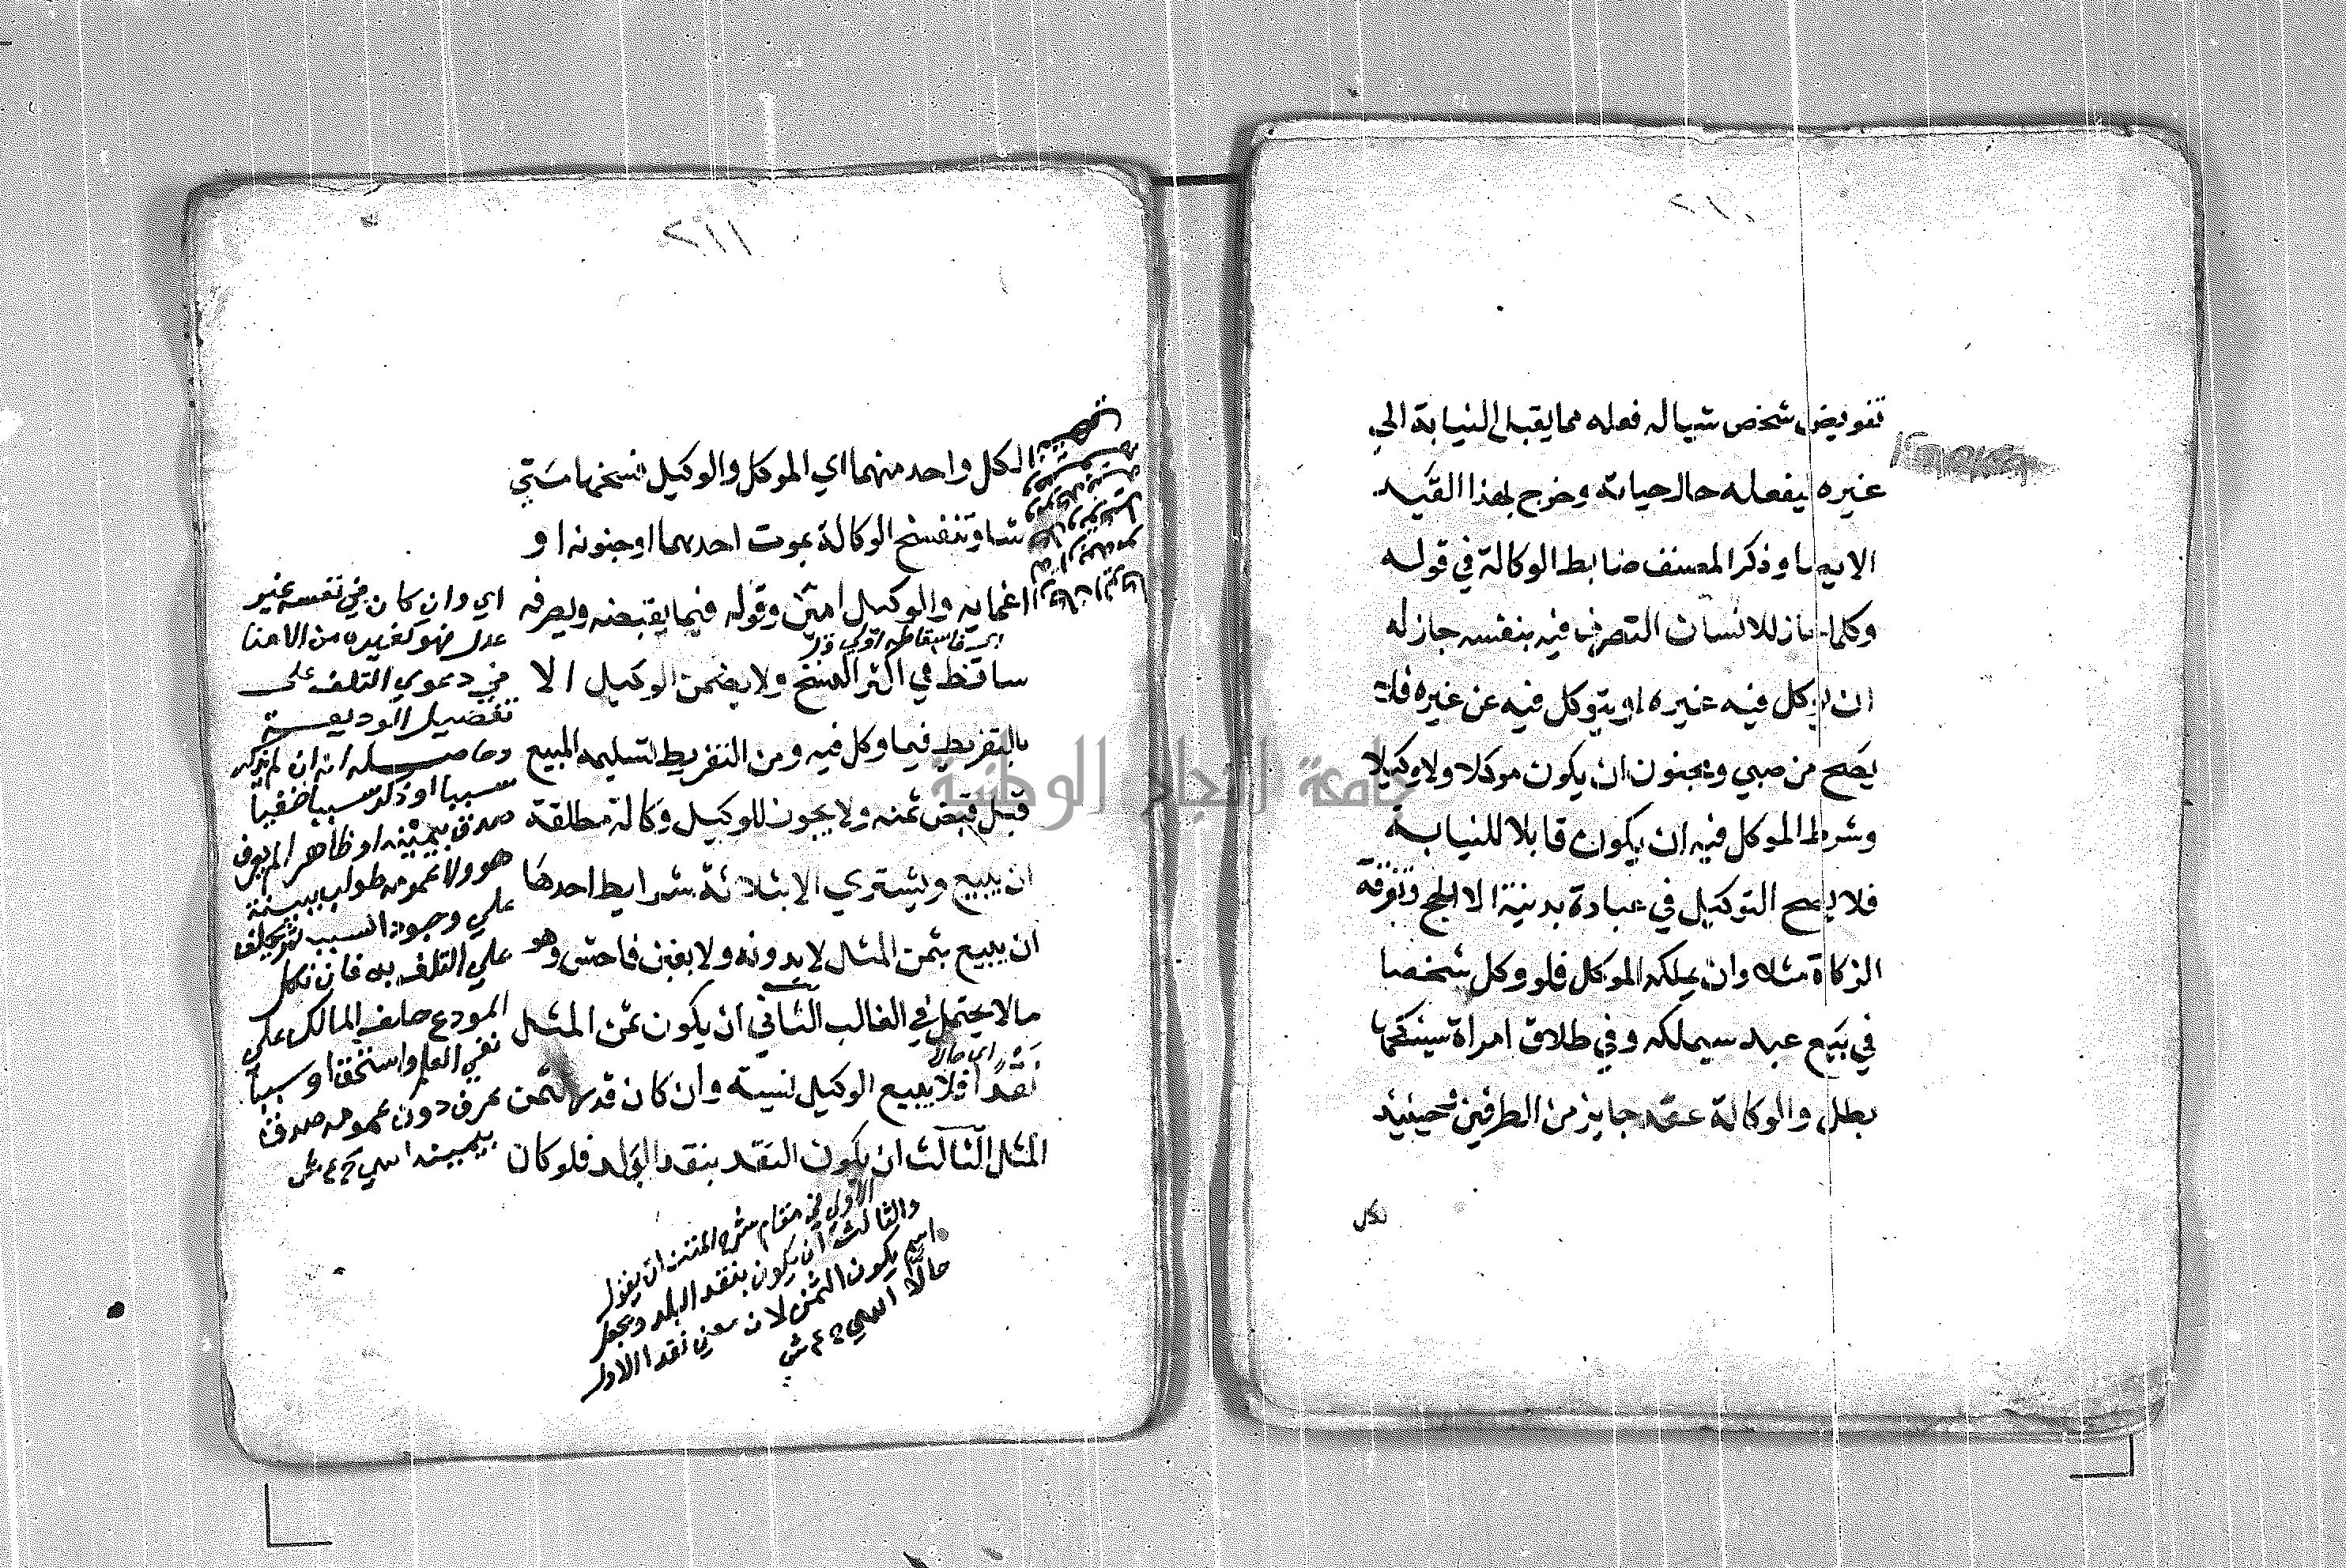 ٢١٠
تفويض شخص شيا له فعله مما يقبل النيابة الي
غيره ليفعله حال حياته وخرج بهذا القيد
الايصا وذكر المصنف ضابط الوكالة في قوله
وكلما جاز للانسان التصرف فيه بنفسه جاز له
ان يوكل فيه غيره او يتوكل فيه عن غيره فلا
يصح من صبي ومجنون ان يكون موكلا ولا وكيلا
وشرط الموكل فيه ان يكون قابلا للنيابة
فلا يصح التوكيل في عبادة بدنية الا الحج وتفرقة
الزكاة مثلا وان يملكه الموكل فلو وكل شخصا
في بيع عبد سيملكه وفي طلاق امراة سينكحها
بطل والوكالة عقد جايز من الطرفين فحينيذ
لكل
٢١١
لكل واحد منهما اي الموكل والوكيل فسخها متي
شا وتنفسخ الوكالة بموت احدهما او جنونه او
اغمايه والوكيل امين وقوله فيما يقبضه ويصرفه
ساقط في اكثر النسخ ولا يضمن الوكيل الا
بالتفريط فيما وكل فيه ومن التفريط تسليمه المبيع
قبل قبض ثمنه ولا يجوز للوكيل وكالة مطلقة
ان يبيع ويشتري الا بثلاثة شرايط احدها
ان يبيع بثمن المثل لا بدونه ولا بغبن فاحش وهو
ما لا يحتمل في الغالب الثاني ان يكون ثمن المثل
اي حالا
نقدا فلا يبيع الوكيل نسية وان كان قدر ثمن
المثل الثالث ان يكون النقد بنقد البلد فلو كان
اي وان كان في نفسه غير
عدل فهو كغيره من الامنا
في دعوي التلف علي
تفصيل الوديعة
وحاصله انه ان لم يذكر
سببا او ذكر سببا خفيا
صدق بيمينه او ظاهرا لم يعرف
هو ولا عمومه طولب ببينة
علي وجود السبب ثم يحلف
علي التلف به فان نكل
المودع حلف المالك علي
نفي العلم واستحق او سببا
عرف دون عمومه صدق
بيمينه
الاولي في مقام شرح المتن ان يقول
والثالث ان يكون بنقد البلد ويجعل
اسم يكون الثمن لان معني نقدا الاول
حالا
جامعة النجاح الوطنية